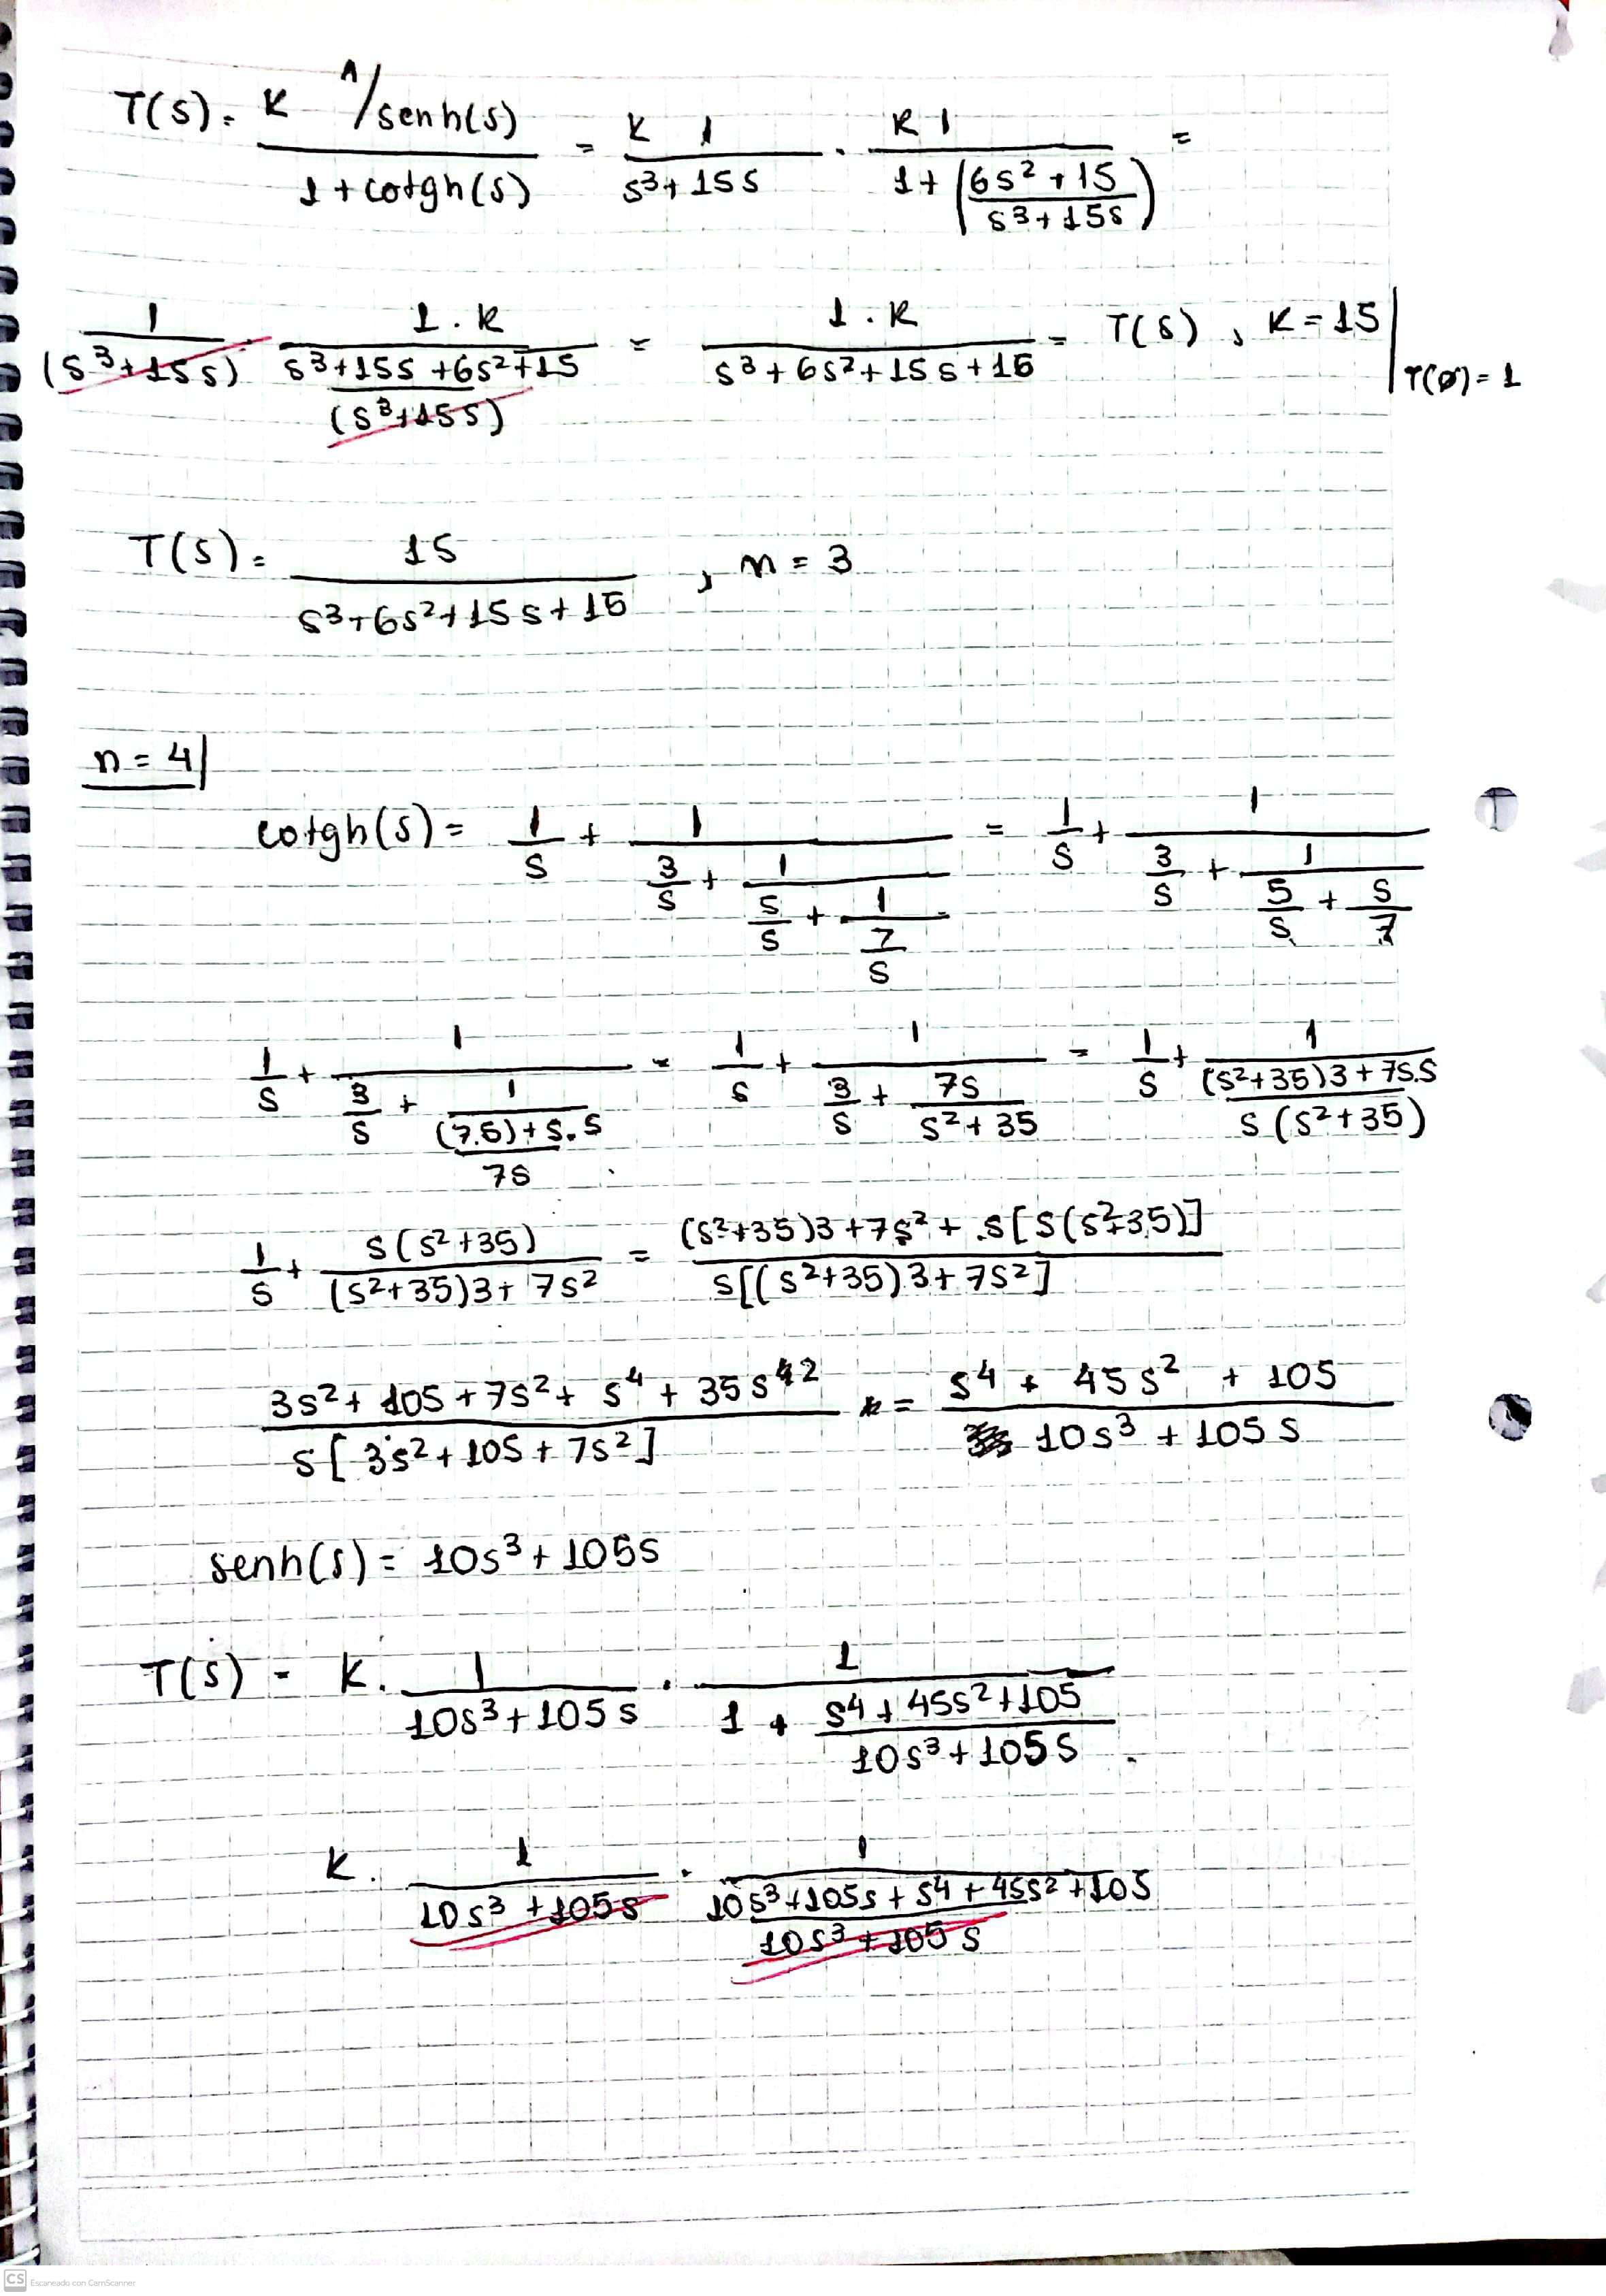 T(s) = K 1/senh(s) / 1 + cotgh(s) = K 1 / s³+15s · K 1 / 1+ (6s²+15 / s³+15s) =
1 / (s³+15s) · 1.K / (s³+15s+6s²+15 / (s³+15s)) = 1.K / s³+6s²+15s+15 = T(s) , K=15 | T(ø)=1
T(s) = 15 / s³+6s²+15s+15 , n = 3
n = 4
cotgh(s) = 1/s + 1 / (3/s + 1 / (5/s + 1 / (7/s))) = 1/s + 1 / (3/s + 1 / (5/s + s/7))
1/s + 1 / (3/s + 1 / ((7.5)+s.s / 7s)) = 1/s + 1 / (3/s + 7s / s²+35) = 1/s + 1 / ((s²+35)3+7s.s / s(s²+35))
1/s + s(s²+35) / (s²+35)3+7s² = (s²+35)3+7s²+s[s(s²+35)] / s[(s²+35)3+7s²]
3s²+105+7s²+s⁴+35s² / s[3s²+105+7s²] = s⁴+45s²+105 / 10s³+105s
senh(s) = 10s³+105s
T(s) = K. 1 / 10s³+105s · 1 / 1 + (s⁴+45s²+105 / 10s³+105s)
K. 1 / 10s³+105s · 1 / (10s³+105s+s⁴+45s²+105 / 10s³+105s)
CS Escaneado con CamScanner